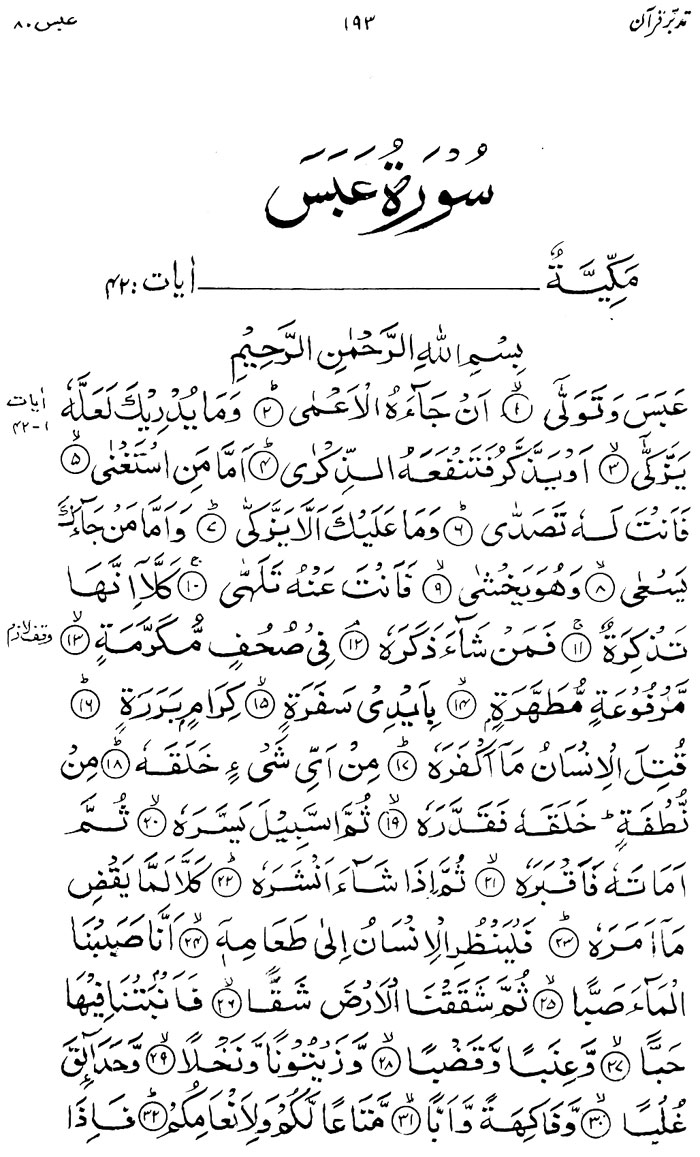 تدبّرِ قرآن ۱۹۳ عبس ۸۰
سُوْرَةُ عَبَسَ
مَكِّيَّةٌ ايات: ۴۲
بِسْمِ اللهِ الرَّحْمٰنِ الرَّحِيْمِ
عَبَسَ وَتَوَلّٰىٓ ۙ﴿۱﴾ اَنْ جَآءَهُ الْاَعْمٰى ؕ﴿۲﴾ وَمَا يُدْرِيْكَ لَعَلَّهٗ
ايات ۱-۴۲
يَزَّكّٰىٓ ۙ﴿۳﴾ اَوْ يَذَّكَّرُ فَتَنْفَعَهُ الذِّكْرٰى ؕ﴿۴﴾ اَمَّا مَنِ اسْتَغْنٰى ۙ﴿۵﴾
فَاَنْتَ لَهٗ تَصَدّٰى ؕ﴿۶﴾ وَمَا عَلَيْكَ اَلَّا يَزَّكّٰى ؕ﴿۷﴾ وَاَمَّا مَنْ جَآءَكَ
يَسْعٰى ۙ﴿۸﴾ وَهُوَ يَخْشٰى ۙ﴿۹﴾ فَاَنْتَ عَنْهُ تَلَهّٰى ۚ﴿۱۰﴾ كَلَّآ اِنَّهَا
تَذْكِرَةٌ ۚ﴿۱۱﴾ فَمَنْ شَآءَ ذَكَرَهٗ ۘ﴿۱۲﴾ فِيْ صُحُفٍ مُّكَرَّمَةٍ ۙ﴿۱۳﴾
وقف لازم
مَّرْفُوْعَةٍ مُّطَهَّرَةٍۭ ۙ﴿۱۴﴾ بِاَيْدِيْ سَفَرَةٍ ۙ﴿۱۵﴾ كِرَامٍۭ بَرَرَةٍ ؕ﴿۱۶﴾
قُتِلَ الْاِنْسَانُ مَآ اَكْفَرَهٗ ؕ﴿۱۷﴾ مِنْ اَيِّ شَيْءٍ خَلَقَهٗ ؕ﴿۱۸﴾ مِنْ
نُّطْفَةٍ ؕ خَلَقَهٗ فَقَدَّرَهٗ ۙ﴿۱۹﴾ ثُمَّ السَّبِيْلَ يَسَّرَهٗ ۙ﴿۲۰﴾ ثُمَّ
اَمَاتَهٗ فَاَقْبَرَهٗ ۙ﴿۲۱﴾ ثُمَّ اِذَا شَآءَ اَنْشَرَهٗ ؕ﴿۲۲﴾ كَلَّا لَمَّا يَقْضِ
مَآ اَمَرَهٗ ؕ﴿۲۳﴾ فَلْيَنْظُرِ الْاِنْسَانُ اِلٰى طَعَامِهٖٓ ۙ﴿۲۴﴾ اَنَّا صَبَبْنَا
الْمَآءَ صَبًّا ۙ﴿۲۵﴾ ثُمَّ شَقَقْنَا الْاَرْضَ شَقًّا ۙ﴿۲۶﴾ فَاَنْۢبَتْنَا فِيْهَا
حَبًّا ۙ﴿۲۷﴾ وَّعِنَبًا وَّقَضْبًا ۙ﴿۲۸﴾ وَّزَيْتُوْنًا وَّنَخْلًا ۙ﴿۲۹﴾ وَّحَدَآئِقَ
غُلْبًا ۙ﴿۳۰﴾ وَّفَاكِهَةً وَّاَبًّا ۙ﴿۳۱﴾ مَّتَاعًا لَّكُمْ وَلِاَنْعَامِكُمْ ؕ﴿۳۲﴾ فَاِذَا